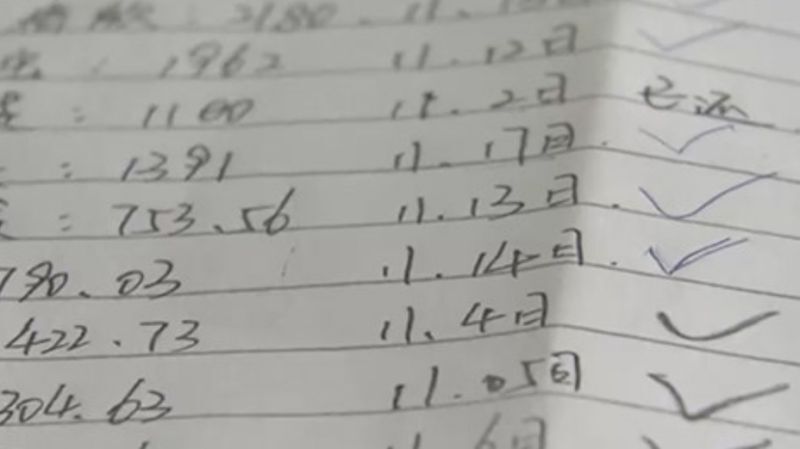 : 2180. 11.
: 1962 11.12日
: 1100 11.2日 已还
: 1391 11.17日.
: 753.56 11.13日.
790.03 11.14日.
422.73 11.4日
304.63 11.05日
11.6日